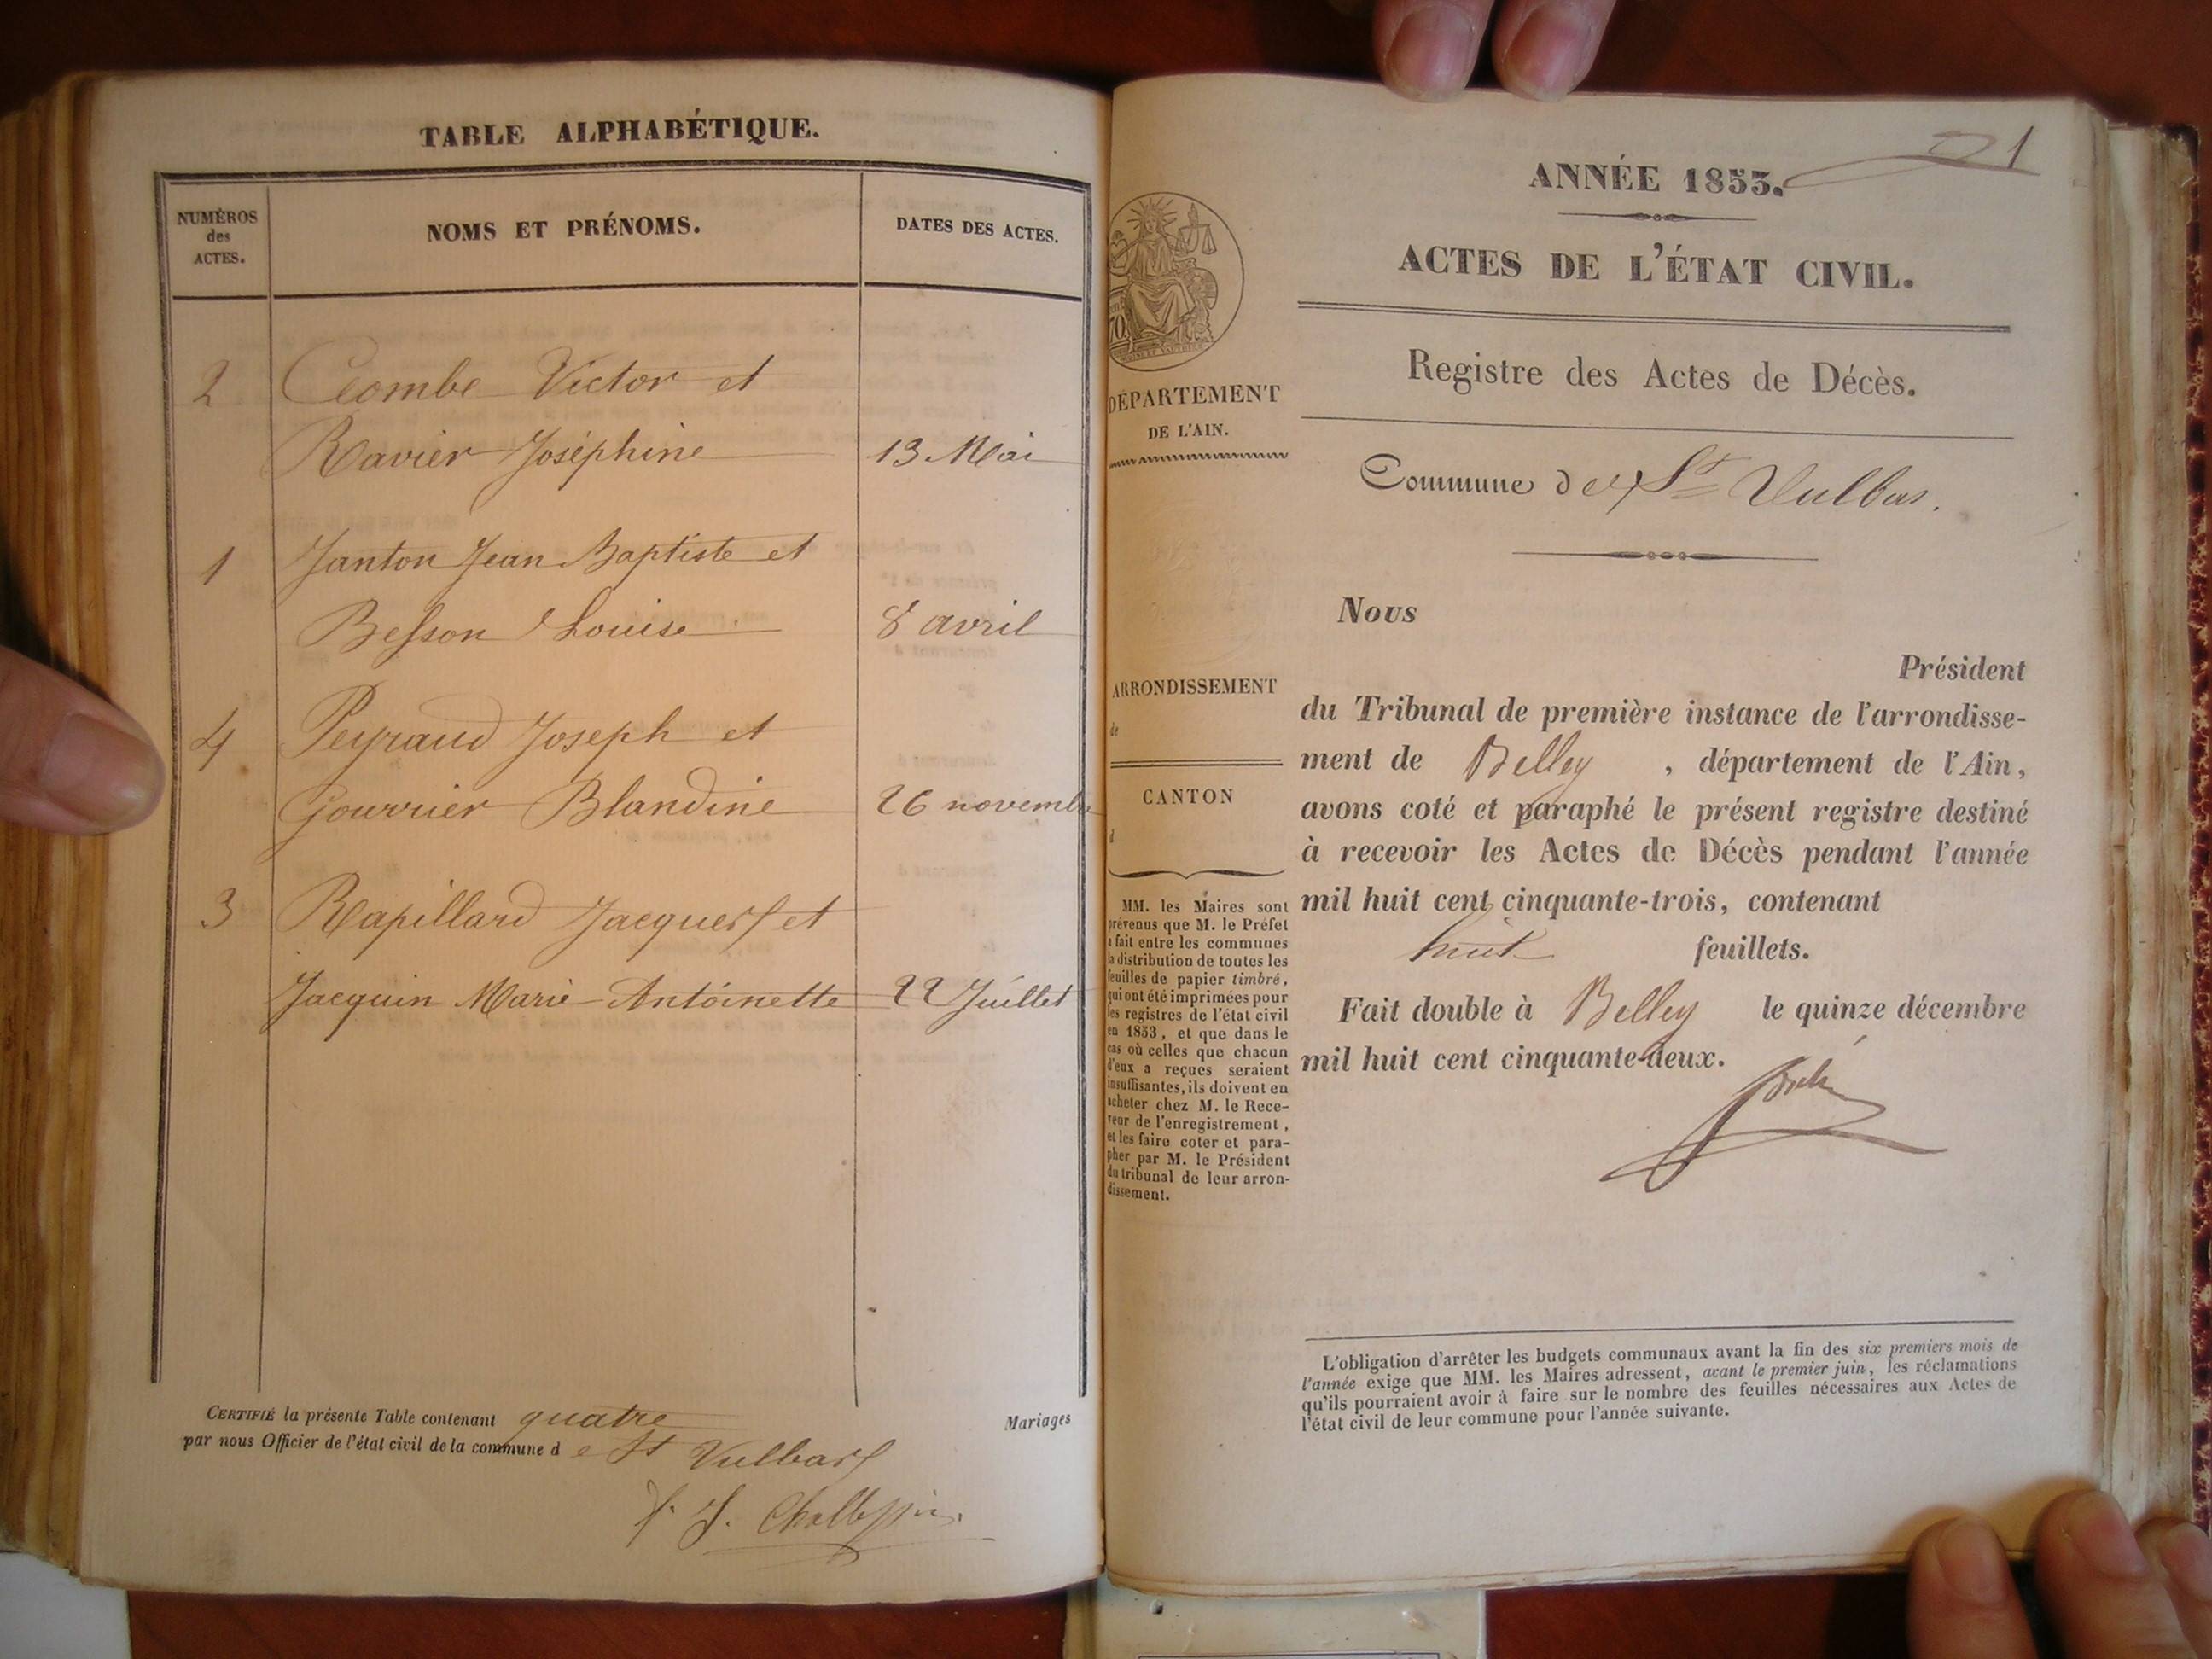 TABLE ALPHABÉTIQUE.
NUMÉROS
des
ACTES.
NOMS ET PRÉNOMS.
DATES DES ACTES.
2 Ceombe Victor et
Ravier Joséphine 13 Mai
1 Janton Jean Baptiste et
Besson Louise 8 avril
4 Peyraud Joseph et
Gourrier Blandine 26 novembre
3 Rapillard Jacques et
Jacquin Marie Antoinette 22 Juillet
CERTIFIÉ la présente Table contenant quatre Mariages
par nous Officier de l'état civil de la commune d e St Vulbas
21
ANNÉE 1853.
ACTES DE L'ÉTAT CIVIL.
Registre des Actes de Décès.
Commune de St Vulbas.
DÉPARTEMENT
DE L'AIN.
ARRONDISSEMENT
de
CANTON
d
MM. les Maires sont
prévenus que M. le Préfet
a fait entre les communes
la distribution de toutes les
feuilles de papier timbré,
qui ont été imprimées pour
les registres de l'état civil
en 1853, et que dans le
cas où celles que chacun
d'eux a reçues seraient
insuffisantes, ils doivent en
acheter chez M. le Rece-
veur de l'enregistrement,
et les faire coter et para-
pher par M. le Président
du tribunal de leur arron-
dissement.
Nous
Président
du Tribunal de première instance de l'arrondisse-
ment de Belley , département de l'Ain,
avons coté et paraphé le présent registre destiné
à recevoir les Actes de Décès pendant l'année
mil huit cent cinquante-trois, contenant
huit feuillets.
Fait double à Belley le quinze décembre
mil huit cent cinquante-deux.
L'obligation d'arrêter les budgets communaux avant la fin des six premiers mois de
l'année exige que MM. les Maires adressent, avant le premier juin, les réclamations
qu'ils pourraient avoir à faire sur le nombre des feuilles nécessaires aux Actes de
l'état civil de leur commune pour l'année suivante.